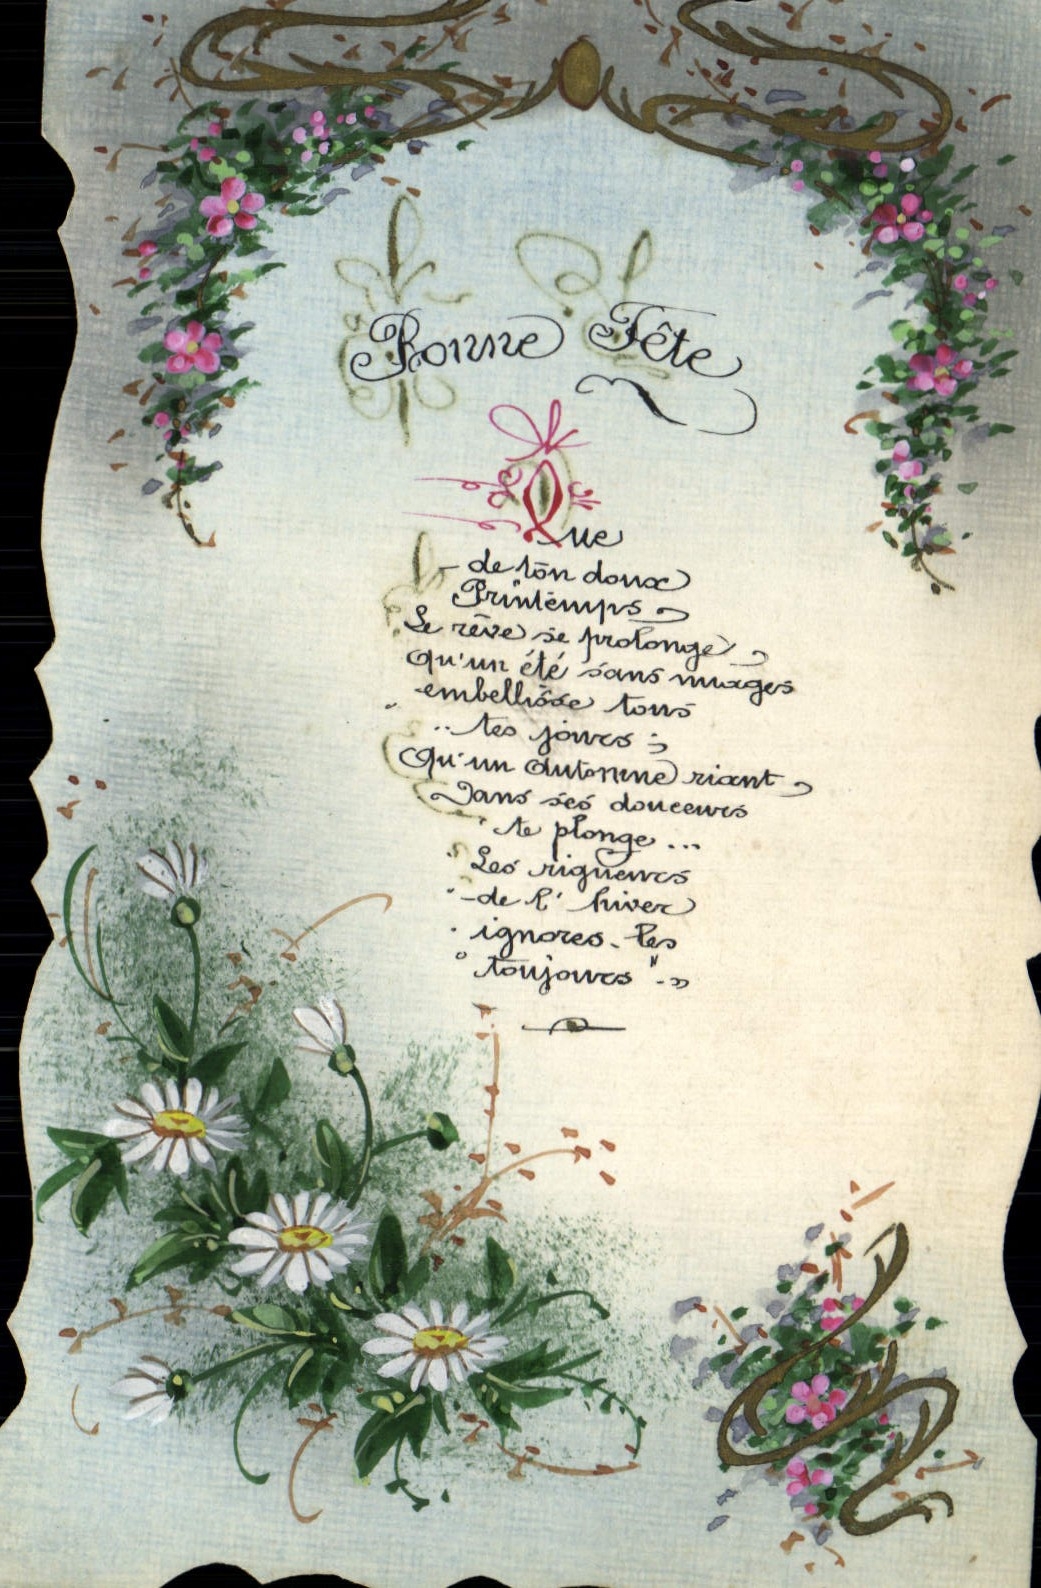 Bonne Fête
Que
de ton doux
Printemps,
Le rêve se prolonge,
Qu'un été sans nuages
embellisse tous
tes jours ;
Qu'un Automne riant,
Dans ses douceurs
te plonge...
Les rigueurs
de l'hiver
ignores-les
"toujours".